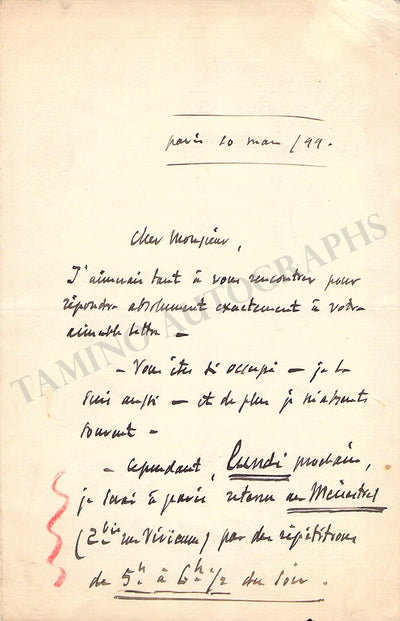 paris 10 mars /99.
Cher Monsieur,
J'aimerais tant à vous rencontrer pour
répondre absolument exactement à votre
aimable lettre –
– Vous êtes si occupé – je le
suis aussi – et de plus je m'absente
souvent –
– Cependant, lundi prochain,
je serai à paris retenu au Ménestrel
(2bis rue Vivienne) par des répétitions
de 5h à 6h 1/2 du soir.
TAMINO AUTOGRAPHS